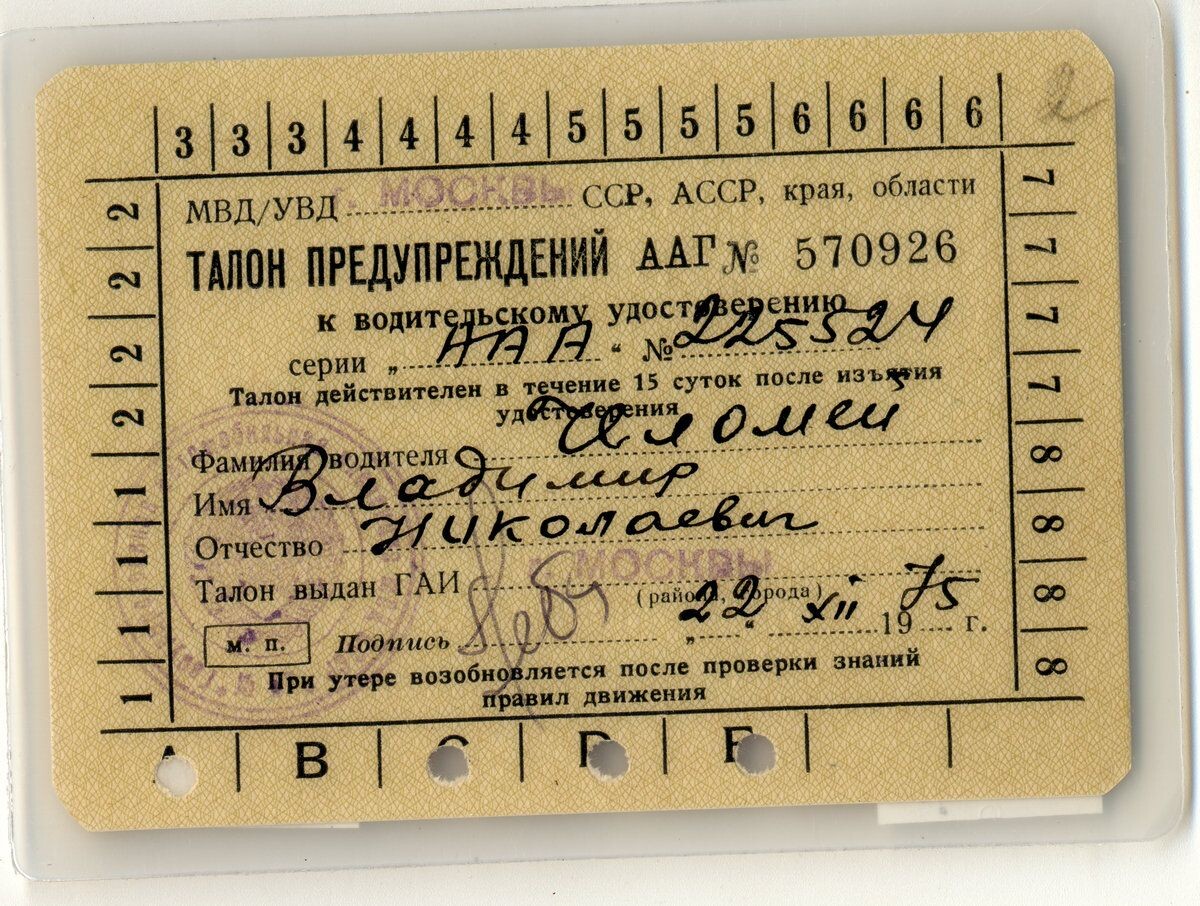 2
3 3 3 4 4 4 4 5 5 5 5 6 6 6 6
2 2 2 2 1 1 1 1
7 7 7 7 8 8 8 8
МВД/УВД г. МОСКВЫ ССР, АССР, края, области
ТАЛОН ПРЕДУПРЕЖДЕНИЙ ААГ № 570926
к водительскому удостоверению
серии „ААА“ № 225524
Талон действителен в течение 15 суток после изъятия
удостоверения
Фамилия водителя
Имя Владимир
Отчество Николаевич
Талон выдан ГАИ г. МОСКВЫ
(района, города)
м. п. Подпись „22“ XII 1975 г.
При утере возобновляется после проверки знаний
правил движения
A B C D E